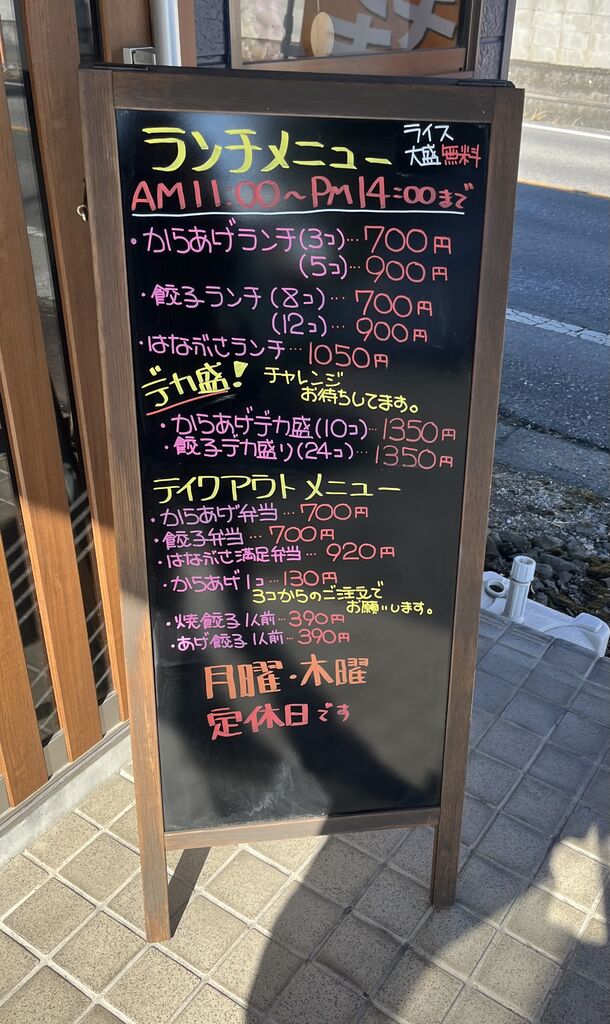 ランチメニュー
ライス
大盛無料
AM11:00～PM14:00まで
・からあげランチ(3コ)…700円
(5コ)…900円
・餃子ランチ(8コ)…700円
(12コ)…900円
・はなぶさランチ…1050円
デカ盛!
チャレンジ
お待ちしてます。
・からあげデカ盛(10コ)…1350円
・餃子デカ盛り(24コ)…1350円
テイクアウトメニュー
・からあげ弁当…700円
・餃子弁当…700円
・はなぶさ満足弁当…920円
・からあげ1コ…130円
3コからのご注立で
お願いします。
・焼餃子1人前…390円
・あげ餃子1人前…390円
月曜・木曜
定休日です